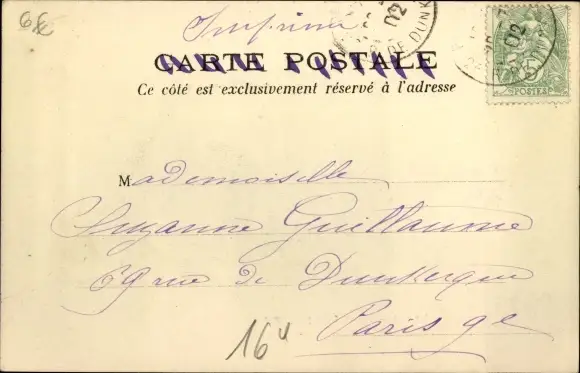 6€
Imprimé
02
DE DUNK
02
5
POSTES
CARTE POSTALE
Ce côté est exclusivement réservé à l'adresse
Mademoiselle
Suzanne Guillaume
69 rue de Dunkerque
Paris 9e
16